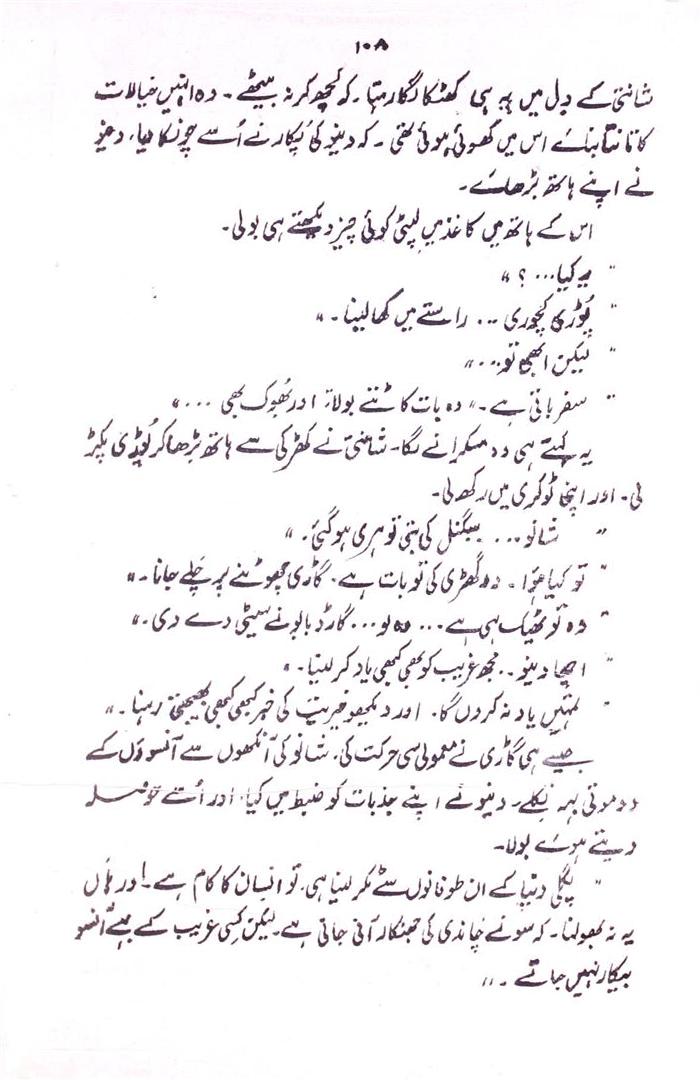 ۱۰۸
شانتی کے دِل میں یہ ہی کھٹکا لگا رہتا۔ کہ کچھ کر نہ بیٹھے۔ وہ انہیں خیالات
کا تانتا بنائے اس میں کھوئی ہوئی تھی۔ کہ دینو کی پُکار نے اُسے چونکا دیا، دینو
نے اپنے ہاتھ بڑھائے۔
اس کے ہاتھ میں کاغذ میں لپٹی کوئی چیز دیکھتے ہی بولی۔
" یہ کیا...؟ "
" پُوڑی کچوری ... راستے میں کھا لینا۔ "
" لیکن ابھی تو... "
" سفر باقی ہے۔" وہ بات کاٹتے بولا، اور بھُوک بھی ... "
یہ کہتے ہی وہ مسکرانے لگا۔ شانتی نے کھڑکی سے ہاتھ بڑھا کر پُوڑی پکڑ
لی۔ اور اپنی ٹوکری میں رکھ لی۔
" شانو... سِگنل کی بتی تو ہری ہو گئی۔ "
" تو کیا ہوا۔ دو گھڑی کی تو بات ہے۔ گاڑی چھوٹنے پر چلے جانا۔ "
" وہ تو ٹھیک ہی ہے... وہ لو... گارڈ بابو نے سیٹی دے دی۔ "
" اچھا دینو.. مجھ غریب کو بھی کبھی یاد کر لینا۔ "
" تمہیں یاد نہ کروں گا۔ اور دیکھو خیریت کی خبر کبھی کبھی بھیجتی رہنا۔ "
جیسے ہی گاڑی نے معمولی سی حرکت کی، شانو کی آنکھوں سے آنسوؤں کے
دو موتی بہہ نِکلے۔ دینو نے اپنے جذبات کو ضبط میں کیا، اور اُسے حوصلہ
دیتے ہوئے بولا۔
" پگلی دنیا کے ان طوفانوں سے ٹکر لینا ہی، تو انسان کا کام ہے۔! اور ہاں
یہ نہ بھولنا۔ کہ سونے چاندی کی جھنکار آتی جاتی ہے۔ لیکن کِسی غریب کے بہے آنسو
بیکار نہیں جاتے ۔ "